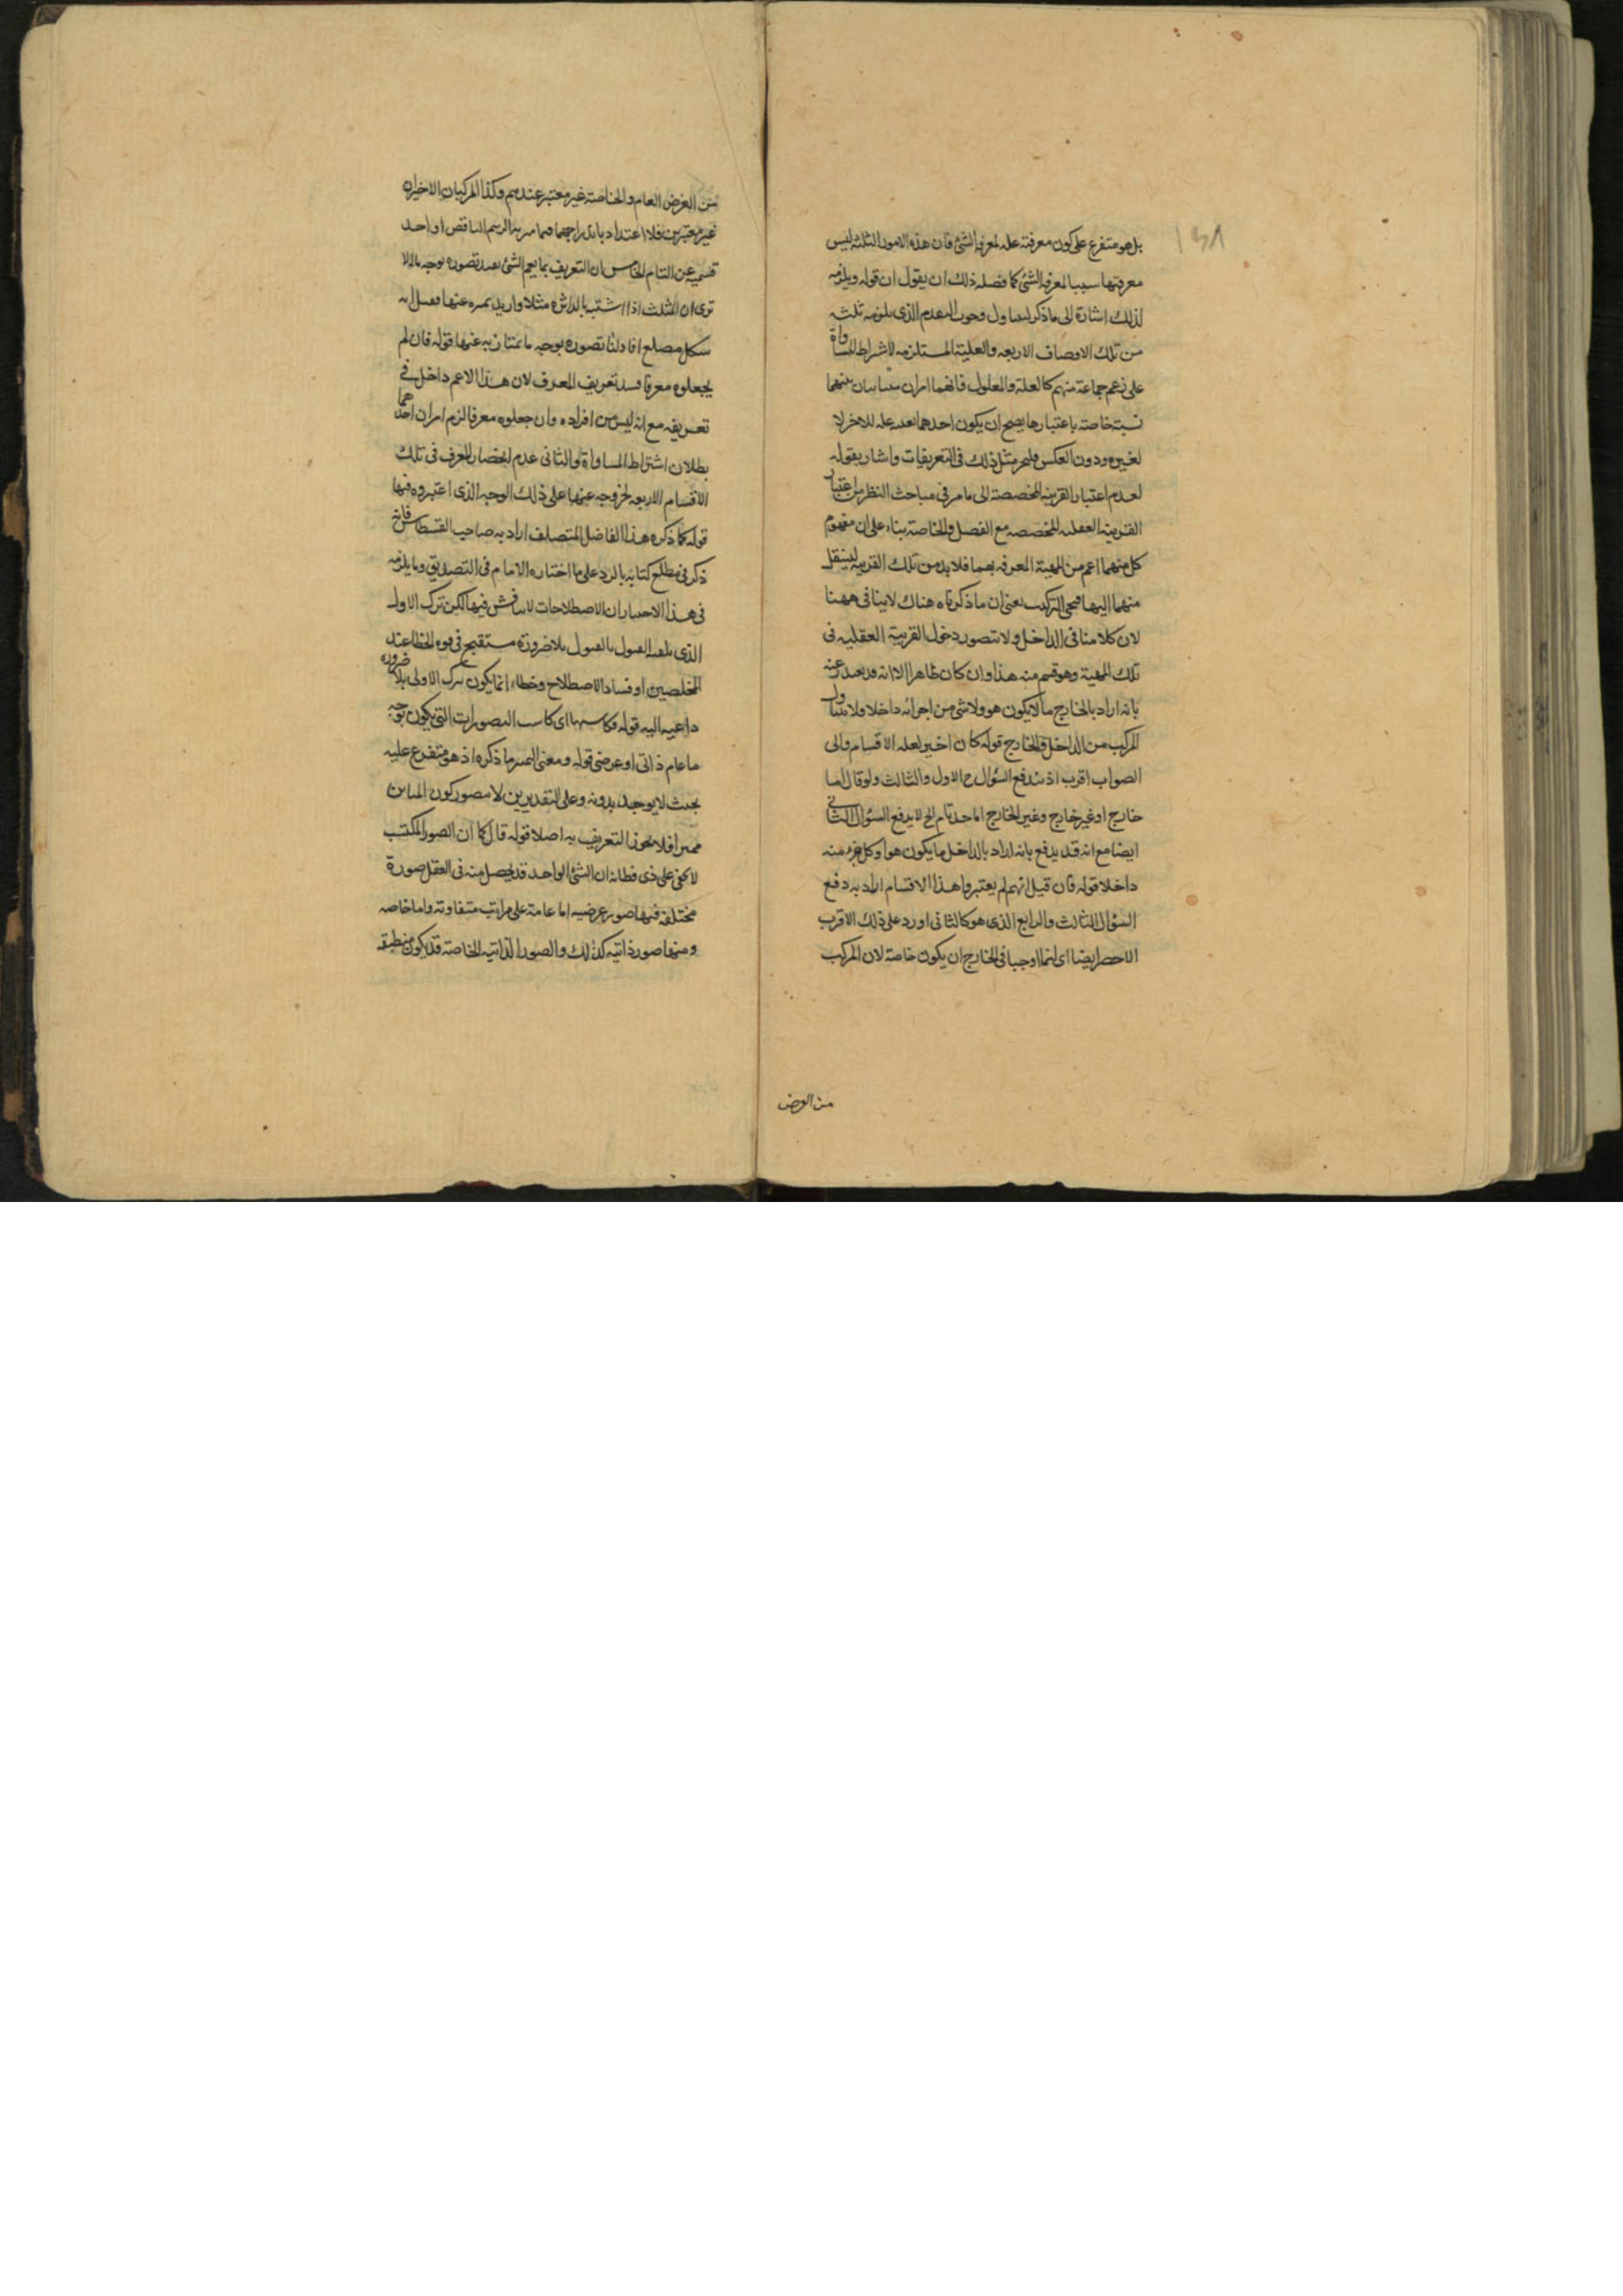 ١٣٨
بل هو متفرع على كون معرفته علة لمعرفة الشئ فان هذه الامور الثلثة ليس
معرفتها سببا لمعرفة الشئ كما فصله ذلك ان يقول ان قوله ويلزمه
لذلك اشارة الى ما ذكر وجوب التقدم الذى يلزمه ثلثه
من تلك الاوصاف الاربعه والعلية المستلزمه لاشراط المساواة
على زعم جماعة منهم كالعلة والمعلول فانهما امران متباينان بينهما
نسبة خاصة باعتبارها يصح ان يكون احدهما علة للاخر لا
لغيره ودون العكس فليجز مثل ذلك فى التعريفات واشار بقوله
لعدم اعتبار القرينة المخصصة الى ما مر فى مباحث النظر من اعتبار
القرينة العقليه المخصصه مع الفصل والخاصة بناء على ان مفهوم
كل منهما اعم من المهية المعرفه بهما فلا بد من تلك القرينة لينتقل
منهما اليها فيجئ التركيب يعنى ان ما ذكرناه هناك لا ينافى ههنا
لان كلامنا فى الداخل ولا نتصور دخول القرينة العقليه فى
تلك المهية وهو قسم منه هذا وان كان ظاهرا الا انه قد يعتذر عنه
بانه اراد بالخارج ما لا يكون هو ولا شئ من اجزائه داخلا ولا يتناول
المركب من الداخل والخارج قوله كان اخير لعله الاقسام والى
الصواب اقرب اذ يندفع السؤال ح الاول والثالث ولو قال اما
خارج او غير خارج وغير الخارج اما حد تام الخ لا يدفع السؤال الثانى
ايضا مع انه قد يدفع بانه اراد بالداخل ما يكون هو او كل جزء منه
داخلا قوله فان قيل انهم لم يعتبروا هذا الاقسام اراد به دفع
السؤال الثالث والرابع الذى هو كالثانى اورد على ذلك الاقرب
الاحصر ايضا اى انما اوجبا فى الخارج ان يكون خاصة لان المركب
من العرض
من العرض العام والخاصة غير معتبر عندهم وكذا المركبان الاخيران
غير معتبرين فلا اعتداد باندراجهما فيما سماه الرسم الناقص او احد
قسميه عن التام الخامس ان التعريف بما يعم الشئ يفيد تصوره بوجه ما الا
ترى ان المثلث اذا اشتبه بالدائرة مثلا واريد تميزه عنها فقيل انه
شكل مضلع افاد لنا تصوره بوجه ما يمتاز به عنها قوله فان لم
يجعلوه معرفا فسد تعريف المعرف لان هذا الاعم داخل فى
تعريفه مع انه ليس من افراده وان جعلوه معرفا لزم امران احدهما
بطلان اشتراط المساواة والثانى عدم انحصار المعرف فى تلك
الاقسام الاربعه لخروجه عنها على ذلك الوجه الذى اعتبروه فيها
قوله كما ذكره هذا الفاضل المتصلف اراد به صاحب القسطاس فانه
ذكر فى مطلع كتابه بالرد على ما اختاره الامام فى التصديق وما يلزمه
فى هذا الاختيار ان الاصطلاحات لا يناقش فيها لكن ترك الاولى
الذى بلا ضرورة مستقبح فى قوة الخطا عند
المخلصين او فساد الاصطلاح وخطاه انما يكون بترك الاولى بلا ضرورة
داعيه اليه قوله فكاسبها اى كاسب التصورات التى يكون بوجه
ما عام ذاتى او عرضى قوله ومعنى التميز ما ذكره اذ هو متفرع عليه
بحيث لا يوجد بدونه وعلى التقديرين لا يتصور كون المباين
مميزا فلا يجوز التعريف به اصلا قوله قال كما ان الصور المكتسب
لا يخفى على ذى فطانة ان الشئ الواحد قد يحصل منه فى العقل صورة
مختلفه فمنها صور عرضيه اما عامة على مراتب متفاوته واما خاصه
ومنها صور ذاتيه كذلك والصور الذاتيه الخاصة قد يكون منطبقه